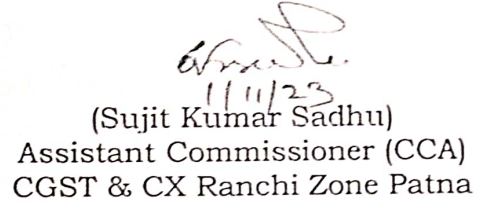 1/11/23
(Sujit Kumar Sadhu)
Assistant Commissioner (CCA)
CGST & CX Ranchi Zone Patna